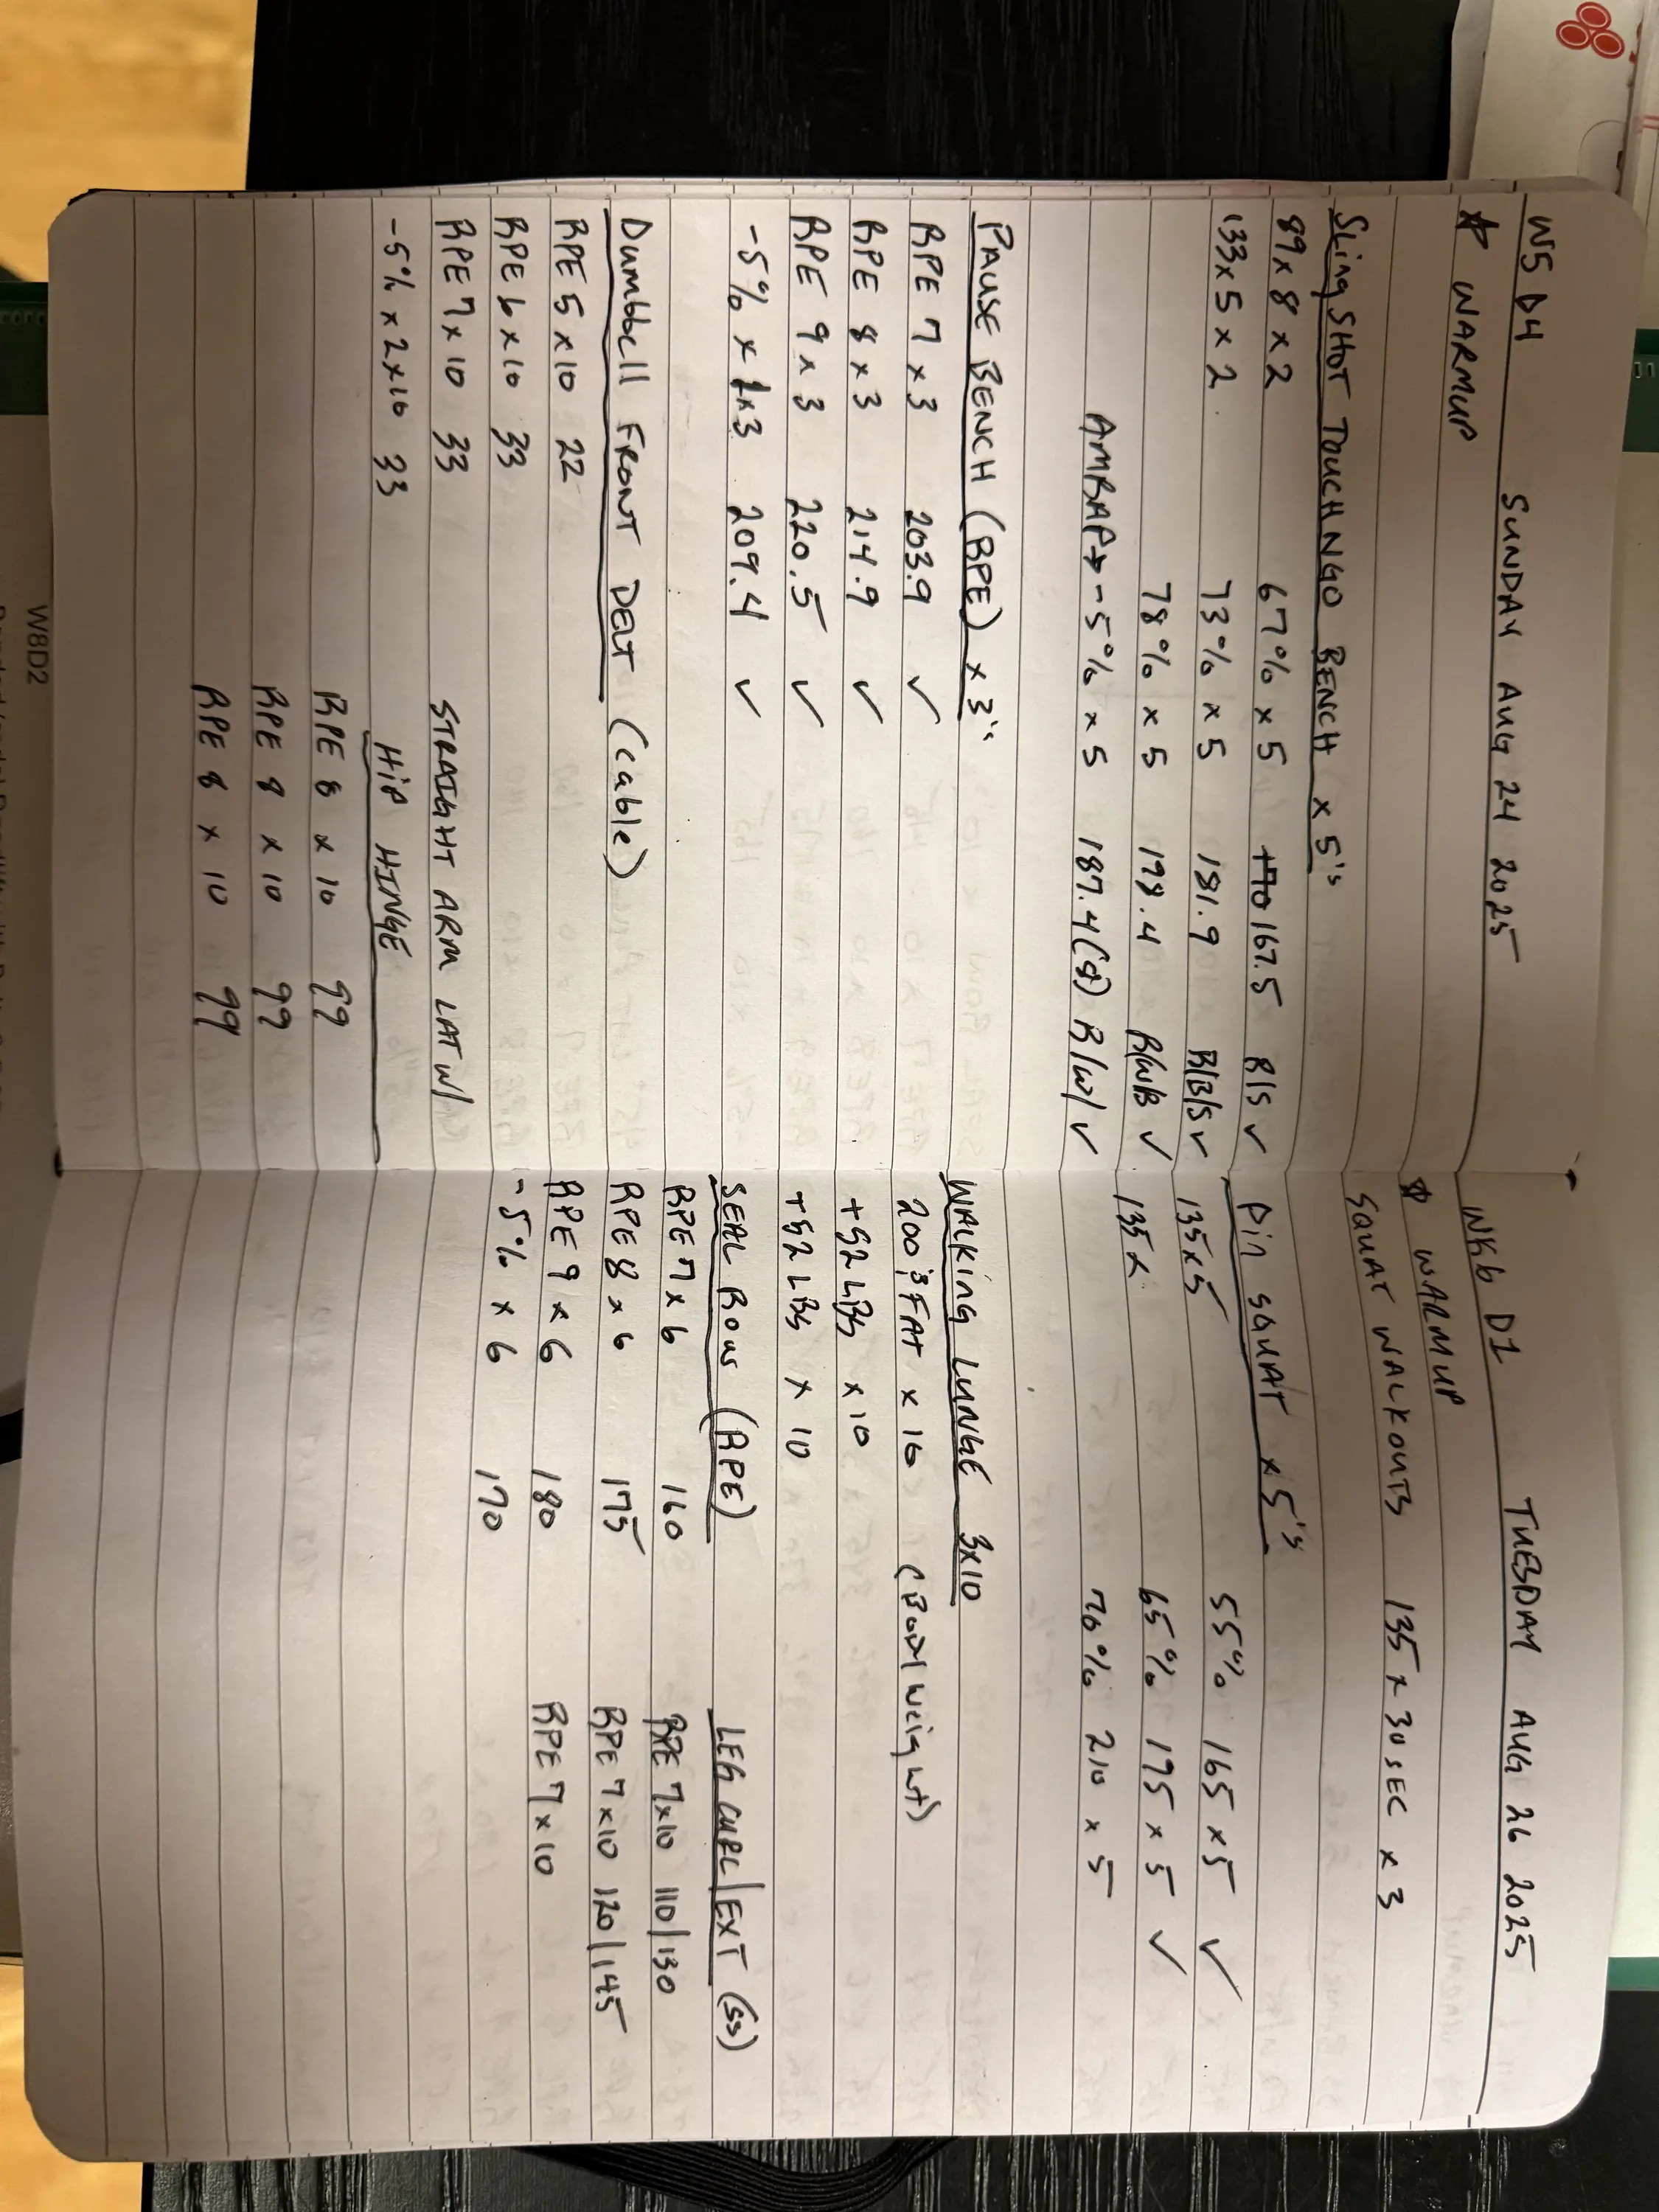 W5 D4 SUNDAY AUG 24 2025
* WARMUP
SLingSHOT TOUCHNGO BENCH x 5's
89 x 8 x 2 67% x 5 170 167.5 B/S ✓
133 x 5 x 2 73% x 5 181.9 B/B/S ✓
78% x 5 198.4 B/W/B ✓
AMRAP → -5% x 5 187.4 (8) B/W/ ✓
PAUSE BENCH (RPE) x 3's
RPE 7 x 3 203.9 ✓
RPE 8 x 3 214.9 ✓
RPE 9 x 3 220.5 ✓
-5% x 1x3 209.4 ✓
Dumbbell FRONT DELT (cable)
RPE 5 x 10 22
RPE 6 x 10 33
RPE 7 x 10 33
-5% x 2 x 10 33
STRAIGHT ARM LAT W/
HIP HINGE
RPE 8 x 10 99
RPE 8 x 10 99
RPE 8 x 10 99
WK6 D1 TUESDAY AUG 26 2025
* WARMUP
SQUAT WALKOUTS 135 x 30 SEC x 3
Pin SQUAT x 5's
135 x 5 55% 165 x 5 ✓
135 x 65% 195 x 5 ✓
70% 210 x 5
WALKING LUNGE 3x10
x 10 (Body weight)
+52 LBS x 10
+52 LBS x 10
SEAL ROW (RPE)
RPE 7 x 6 160
RPE 8 x 6 175
RPE 9 x 6 180
-5% x 6 170
LEG CURL/EXT (SS)
RPE 7 x 10 110/130
RPE 7 x 10 120/145
RPE 7 x 10
W8D2